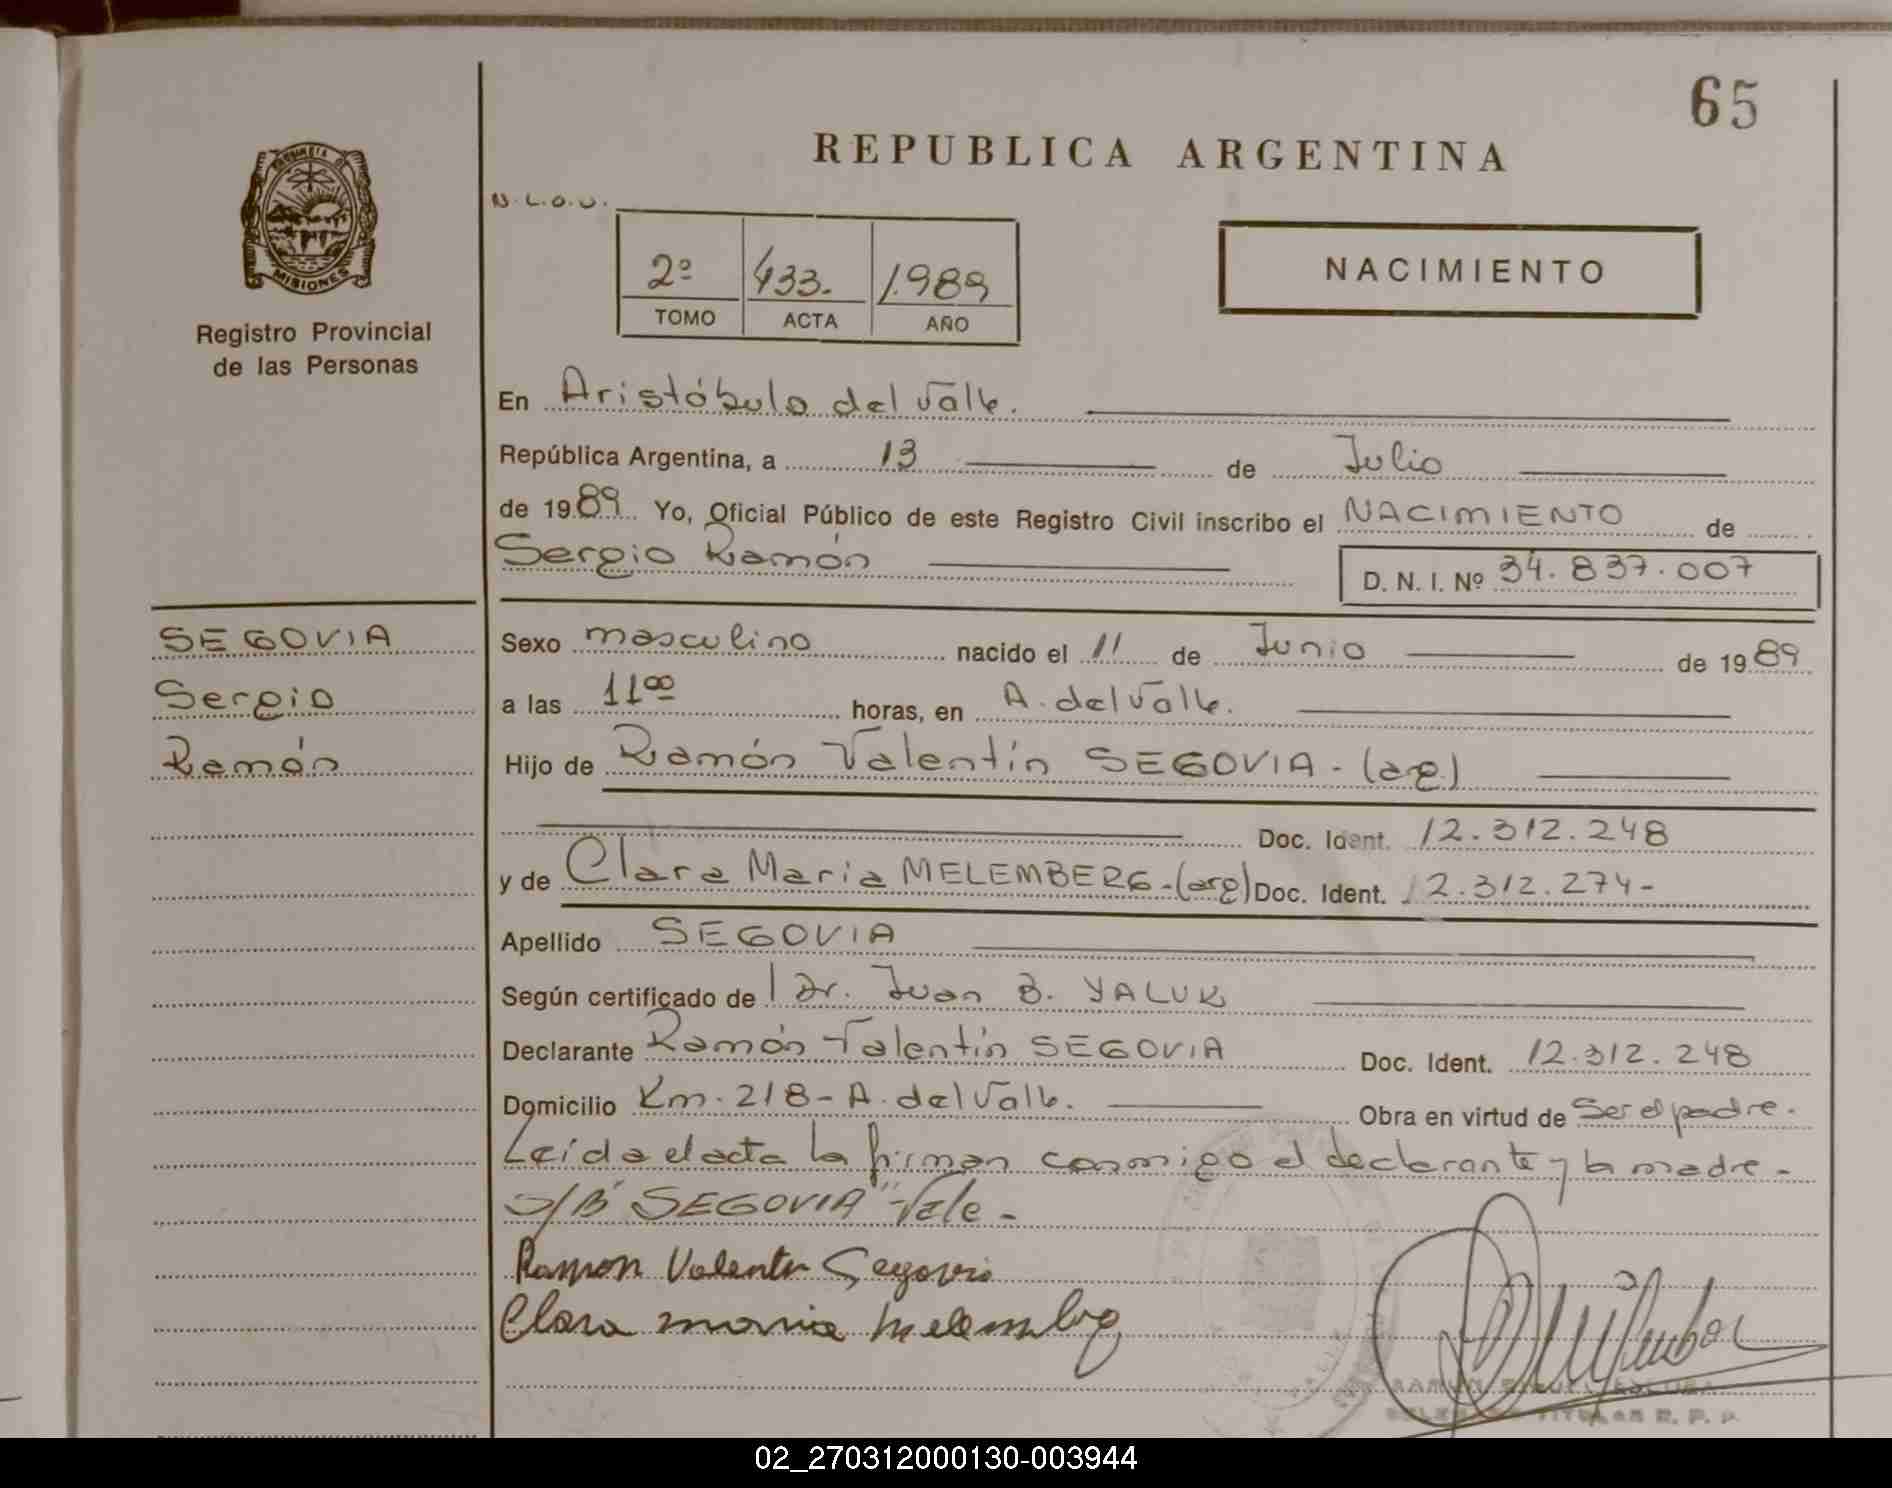 65
REPUBLICA ARGENTINA
N.L.O.U.
MISIONES
Registro Provincial
de las Personas
2º 433. 1.989
TOMO ACTA AÑO
NACIMIENTO
En Aristóbulo del Valle.
República Argentina, a 13 de Julio
de 1989 Yo, Oficial Público de este Registro Civil inscribo el NACIMIENTO de
Sergio Ramón D. N. I. Nº 34.837.007
SEGOVIA
Sergio
Ramón
Sexo masculino nacido el 11 de Junio de 1989
a las 11oo horas, en A. del Valle.
Hijo de Ramón Valentín SEGOVIA - (arg.)
Doc. Ident. 12.312.248
y de Clara Maria MELEMBERG - (arg) Doc. Ident. 12.312.274-
Apellido SEGOVIA
Según certificado de l Dr. Juan B. YALUK
Declarante Ramón Valentín SEGOVIA Doc. Ident. 12.312.248
Domicilio Km. 218 - A. del Valle. Obra en virtud de Ser el padre.
Leída el acta la firman conmigo el declarante y la madre -
S/B "SEGOVIA" Vale -
Ramon Valentin Segovia
Clara maria Melemberg
TITULAR R. P. P.
02_270312000130-003944